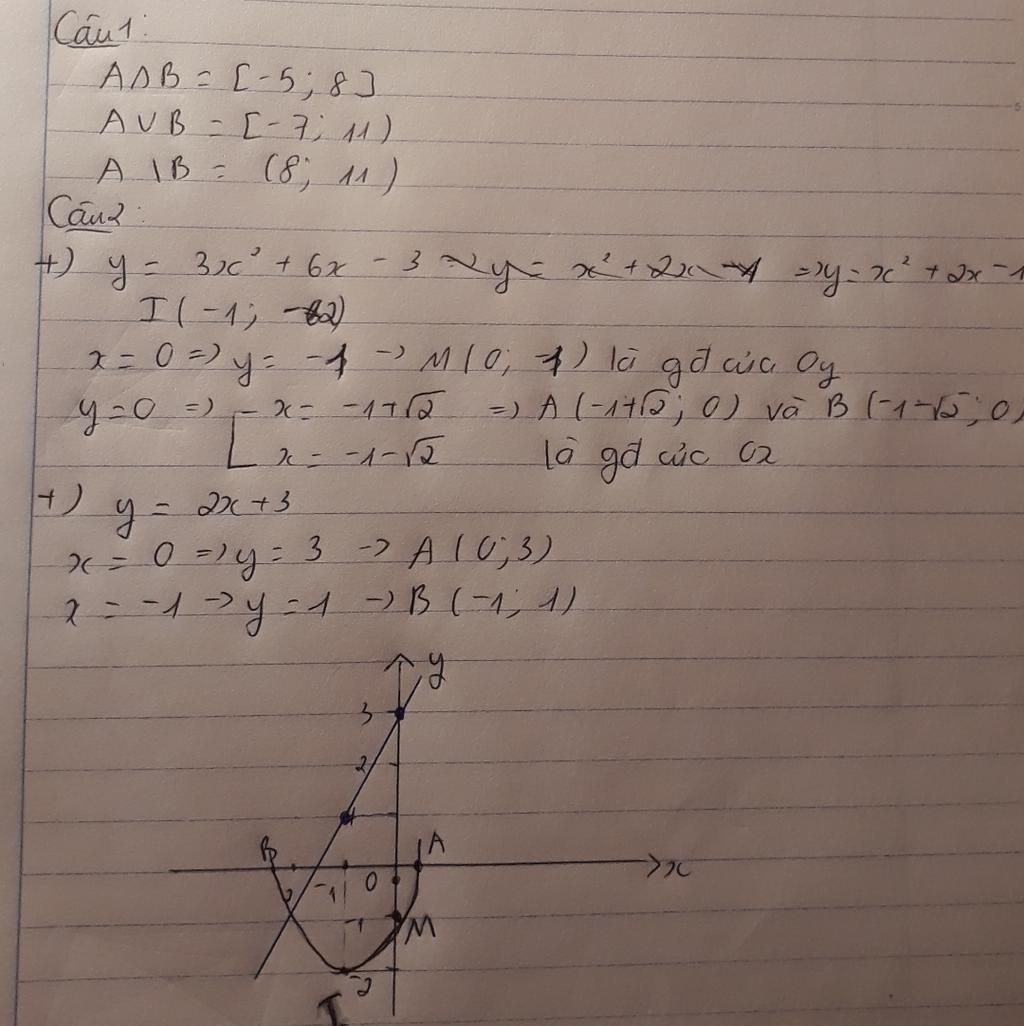 Câu 1:
A∩B = [-5; 8]
A∪B = [-7; 11)
A \ B = (8; 11)
Câu 2:
+) y = 3x² + 6x - 3 => y = x² + 2x - 1 => y = x² + 2x - 1
I(-1; -2)
x = 0 => y = -1 -> M(0; -1) là gđ của Oy
y = 0 => [ x = -1+√2 => A(-1+√2; 0) và B(-1-√2; 0)
x = -1-√2 là gđ của Ox
+) y = 2x + 3
x = 0 => y = 3 -> A(0; 3)
x = -1 -> y = 1 -> B(-1; 1)
y
3
2
1
B A
-1 0 x
-1 M
-2
I